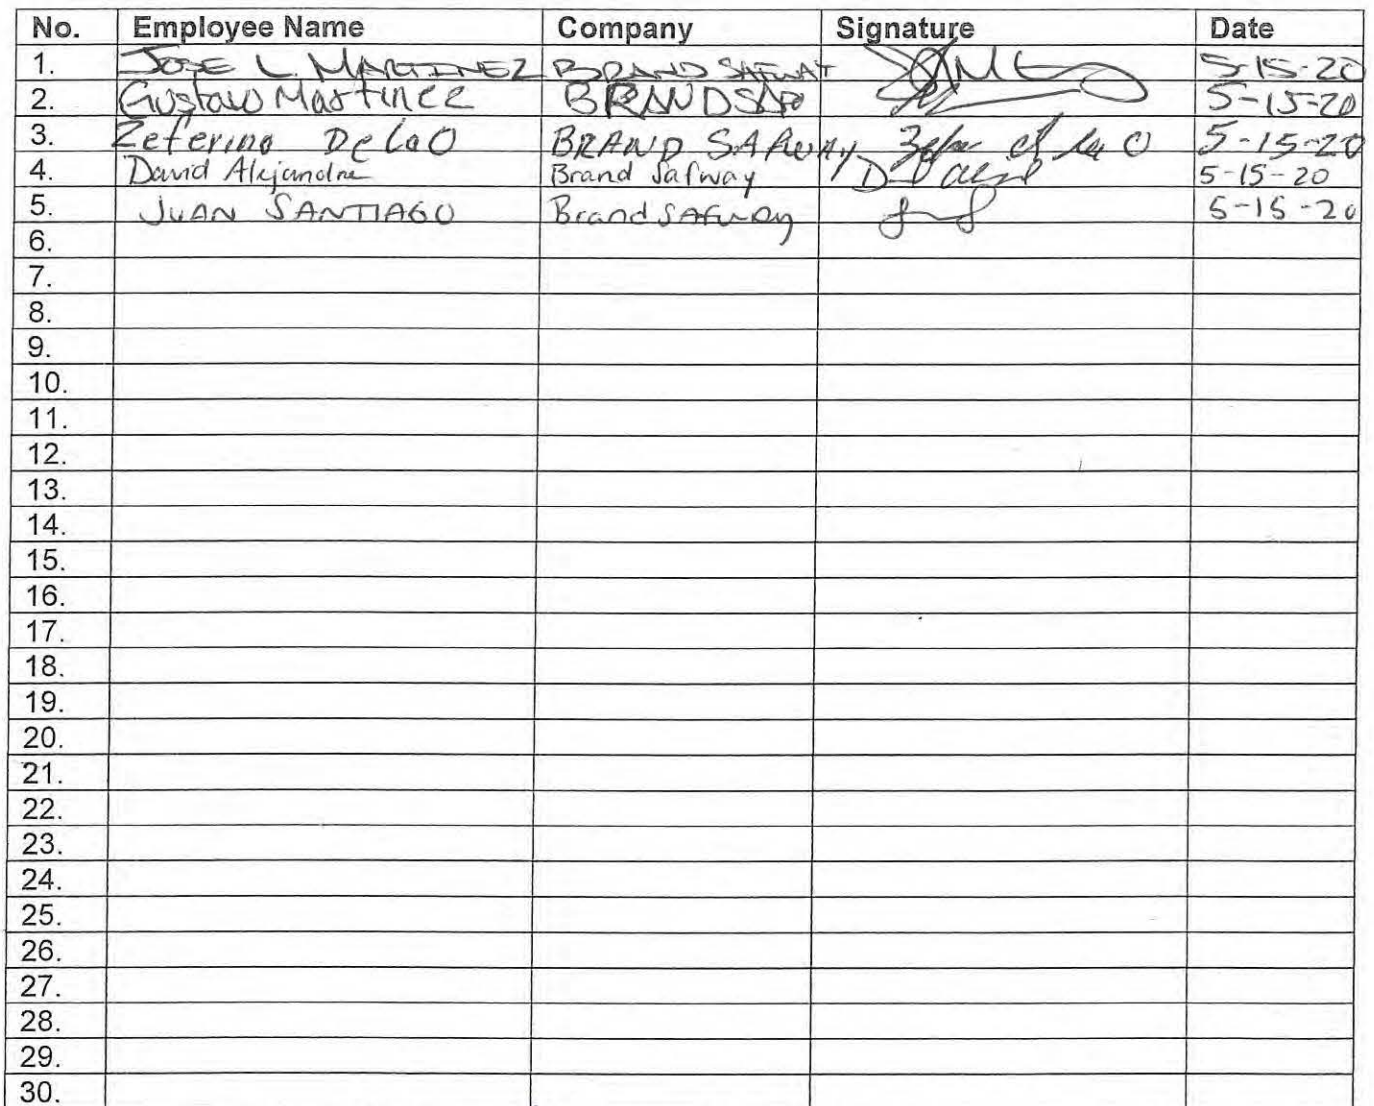 No. Employee Name Company Signature Date
1. JOSE L. MARTINEZ BRAND SAFWAY 5-15-20
2. Gustavo Martinez BRANDSAF 5-15-20
3. Zeferino DelaO BRAND SAFWAY 5-15-20
4. David Alejandre Brand Safway 5-15-20
5. JUAN SANTIAGO Brand SAFWAY 5-15-20
6.
7.
8.
9.
10.
11.
12.
13.
14.
15.
16.
17.
18.
19.
20.
21.
22.
23.
24.
25.
26.
27.
28.
29.
30.